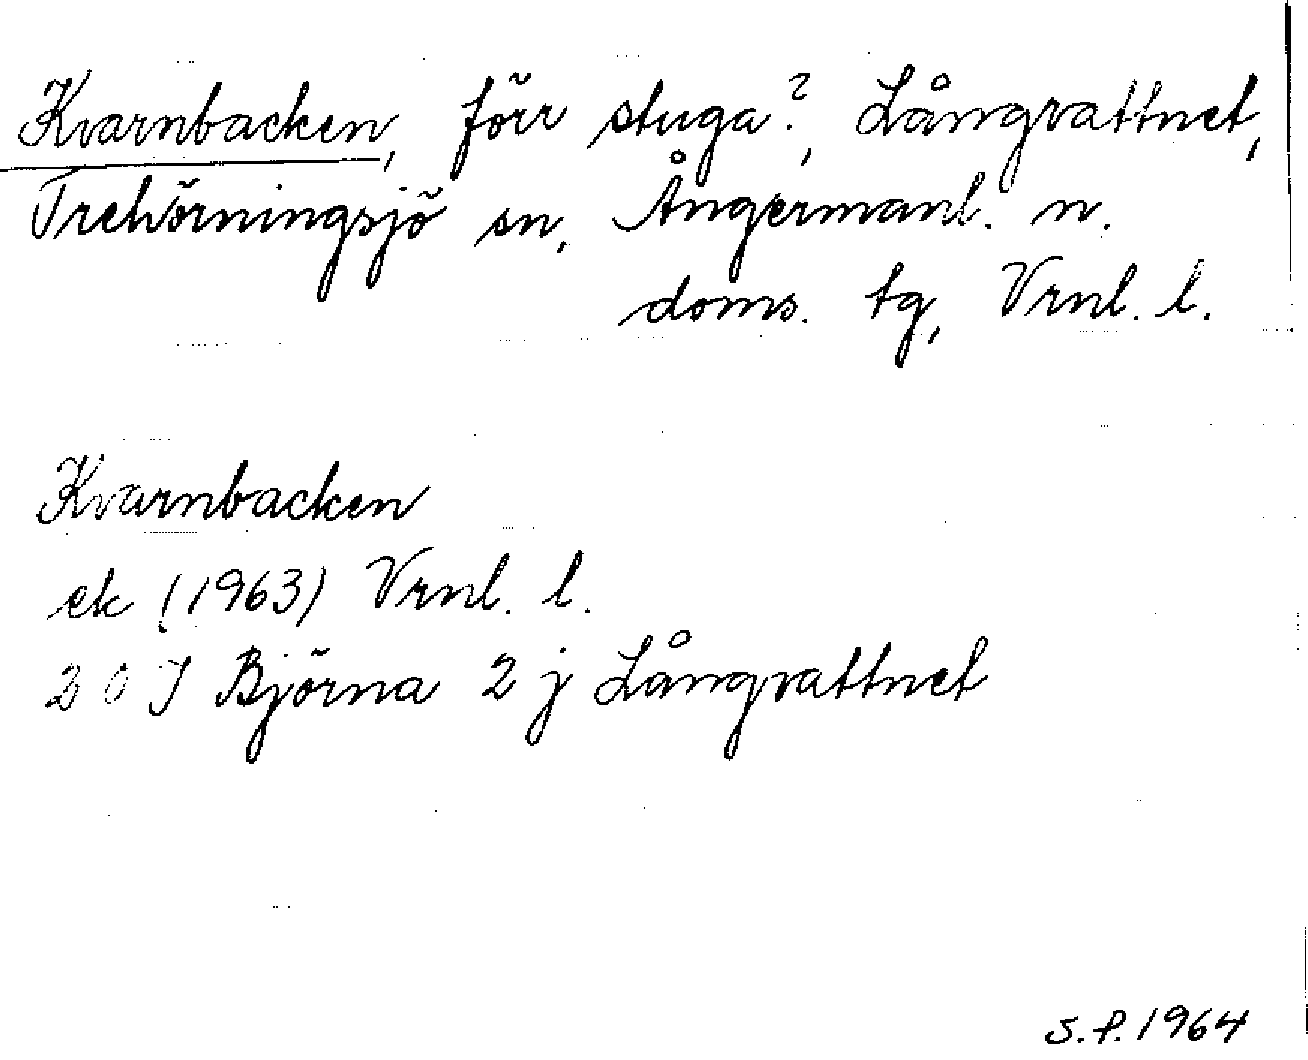 Kvarnbacken, förr stuga?, Långvattnet,
Trehörningsjö sn, Ångermanl. n.
doms. tg, Vrnl. l.
Kvarnbacken
ek (1963) Vrnl. l.
20 J Björna 2 j Långvattnet
S.P. 1964